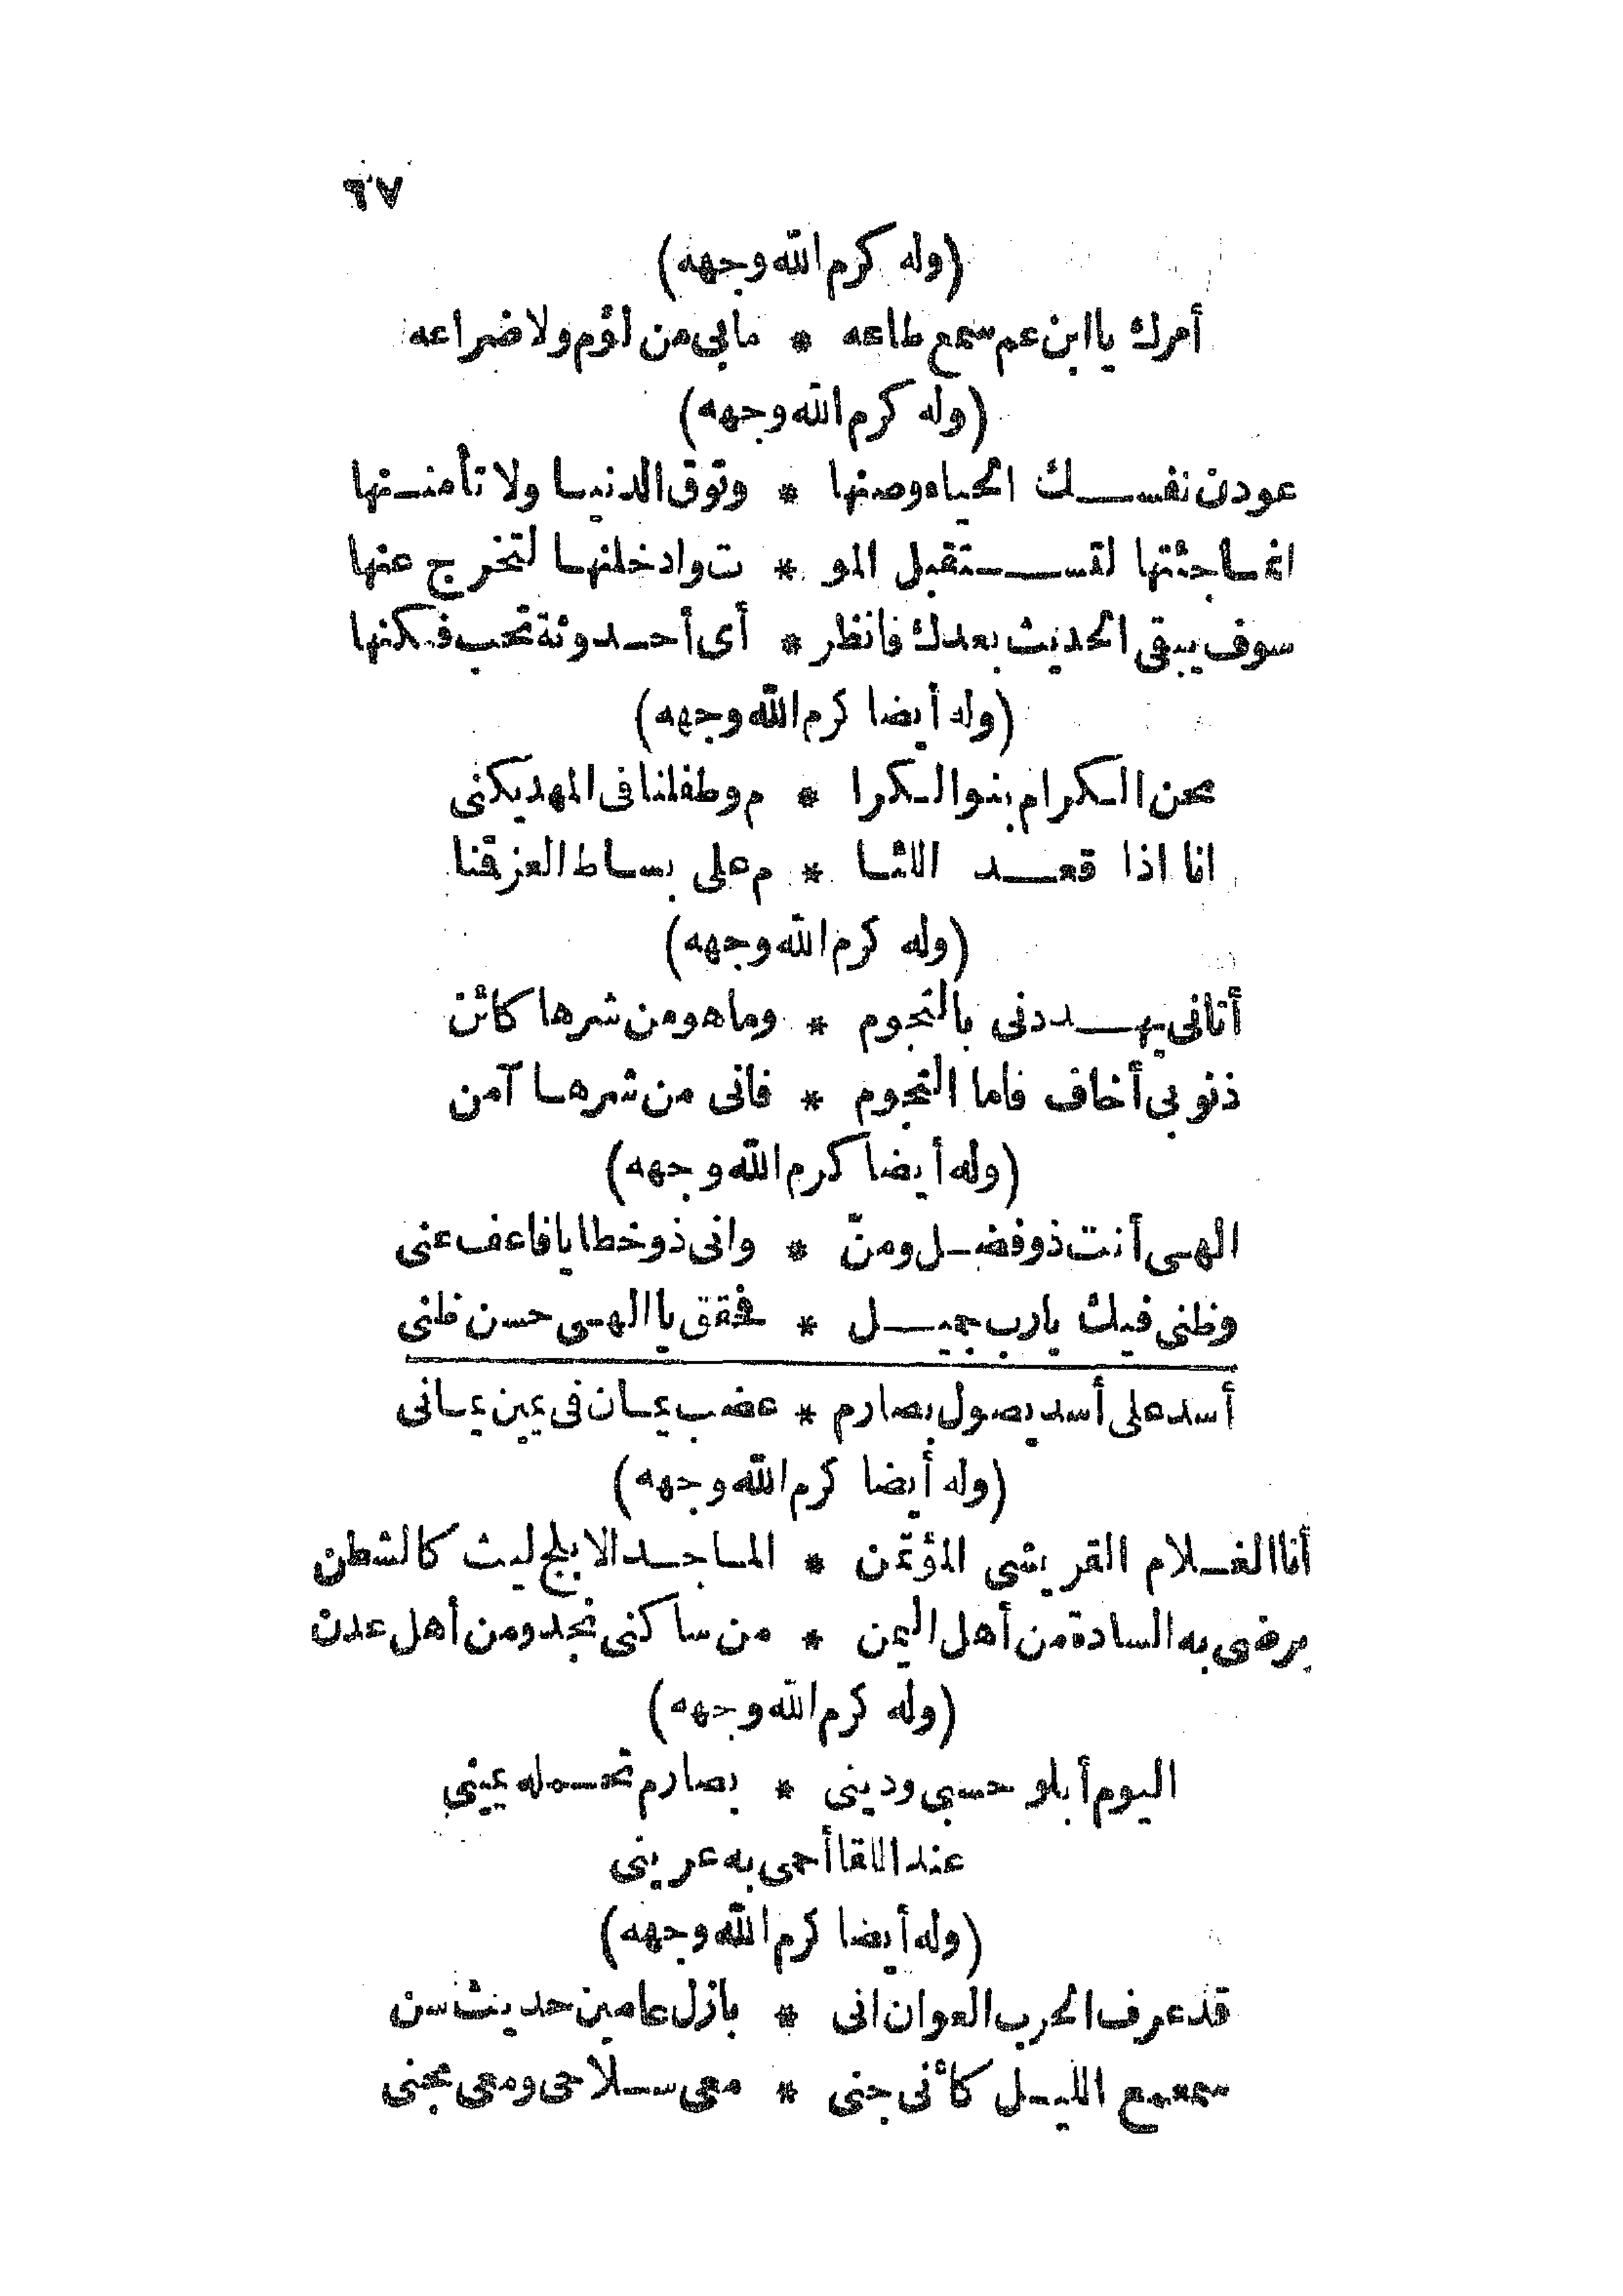 ٦٧
(وله كرم الله وجهه)
أمرك يا ابن عم سمع طاعه * مابي من لؤم ولا ضراعه
(وله كرم الله وجهه)
عودن نفسك الحياء وصنها * وتوق الدنيا ولا تأمننها
انما جئتها لتستقبل المو * ت وادخلنها لتخرج عنها
سوف يبقى الحديث بعدك فانظر * أى أحدوثة تحب فكنها
(وله أيضا كرم الله وجهه)
نحن الكرام بنو الكرا * م وطفلنا فى المهد يكنى
انا اذا قعد اللئا * م على بساط العز قنا
(وله كرم الله وجهه)
أتانى يهددنى بالنجوم * وما هو من شرها كائن
ذنوبى أخاف فاما النجوم * فانى من شرها آمن
(وله أيضا كرم الله وجهه)
الهى أنت ذو فضل ومنّ * وانى ذو خطايا فاعف عنى
وظنى فيك يارب جميل * فحقق يا الهى حسن ظنى
أسد على أسد يصول بصارم * عضب يمان فى يمين يمانى
(وله أيضا كرم الله وجهه)
أنا الغلام القريشى المؤتمن * الماجد الابلج ليث كالشطن
يرضى به السادة من أهل اليمن * من ساكنى نجد ومن أهل عدن
(وله كرم الله وجهه)
اليوم أبلو حسبى ودينى * بصارم تحمله يمينى
عند اللقا أحمى به عرينى
(وله أيضا كرم الله وجهه)
قد عرف الحرب العوان انى * بازل عامين حديث سن
سمعمع الليل كأنى جنى * معى سلاحى ومعى مجنى